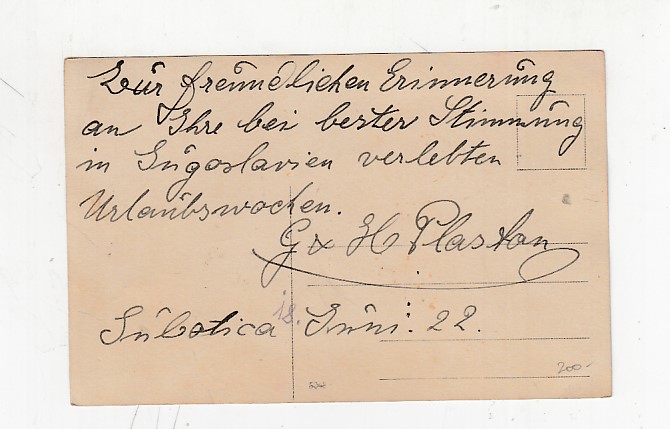 Zur freundlichen Erinnerung
an Ihre bei bester Stimmung
in Jugoslavien verlebten
Urlaubswochen.
G x H Plastan
Subotica 18. Juni. 22.
200-